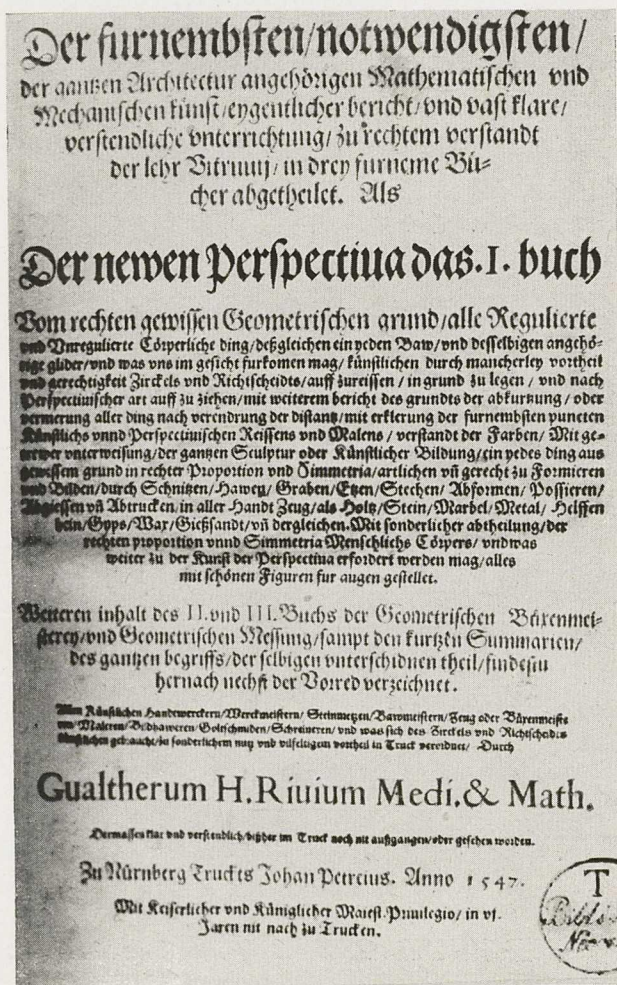 Der furnembsten/notwendigsten/
der gantzen Architectur angehörigen Mathematischen vnd
Mechanischen künst/eygentlicher bericht/vnd vast klare/
verstendliche vnterrichtung/zu rechtem verstandt
der lehr Vitruuij/in drey furneme Bü-
cher abgetheilet. Als
Der newen Perspectiua das.I. buch
Vom rechten gewissen Geometrischen grund/alle Regulierte
vnd Vnregulierte Cörperliche ding/deßgleichen ein yeden Baw/vnd desselbigen angehö-
rige glider/vnd was vns im gesicht furkomen mag/künstlichen durch mancherley vortheil
vnd gerechtigkeit Zirckels vnd Richtscheidts/auff zureissen/in grund zu legen/vnd nach
Perspectiuischer art auff zu ziehen/mit weiterem bericht des grundts der abkurtzung/oder
vermerung aller ding nach verendrung der distantz/mit erklerung der furnembsten puncten
Künstlichs vnnd Perspectiuischen Reissens vnd Malens/verstandt der Farben/Mit ge-
trewer vnterweisung/der gantzen Sculptur oder Künstlicher Bildung/ein yedes ding aus
gewissem grund in rechter Proportion vnd Simmetria/artlichen vñ gerecht zu Formieren
vnd Bilden/durch Schnitzen/Hawen/Graben/Etzen/Stechen/Abformen/Possieren/
Abgiessen vñ Abtrucken/in aller Handt Zeug/als Holtz/Stein/Marbel/Metal/Helffen
bein/Gyps/Wax/Gießsandt/vñ dergleichen.Mit sonderlicher abtheilung/der
rechten proportion vnnd Simmetria Menschlichs Cörpers/vnd was
weiter zu der Kunst der Perspectiua erfordert werden mag/alles
mit schönen Figuren fur augen gestellet.
Weiteren inhalt des II.vnd III.Buchs der Geometrischen Büxenmei-
sterey/vnd Geometrischen Messung/sampt den kurtzen Summarien/
des gantzen begriffs/der selbigen vnterschidnen theil/findestu
hernach nechst der Vorred verzeichnet.
Allen Künstlichen Handtwerckern/Werckmeistern/Steinmetzen/Bawmeistern/Zeug oder Büxenmeiste
ren/Maleren/Bildhaweren/Goltschmiden/Schreineren/vnd was sich des Zirckels vnd Richtscheids
künstlichen gebraucht/in sonderlichem nutz vnd vilfeltigem vortheil in Truck verordnet/Durch
Gualtherum H.Riuium Medi.& Math.
Dermassen klar vnd verstendlich/bißher im Truck noch nit außgangen/oder gesehen worden.
Zu Nürnberg Truckts Johan Petreius. Anno 1547.
Mit Keiserlicher vnd Küniglicher Maiest.Priuilegio/in vj.
Jaren nit nach zu Trucken.
T